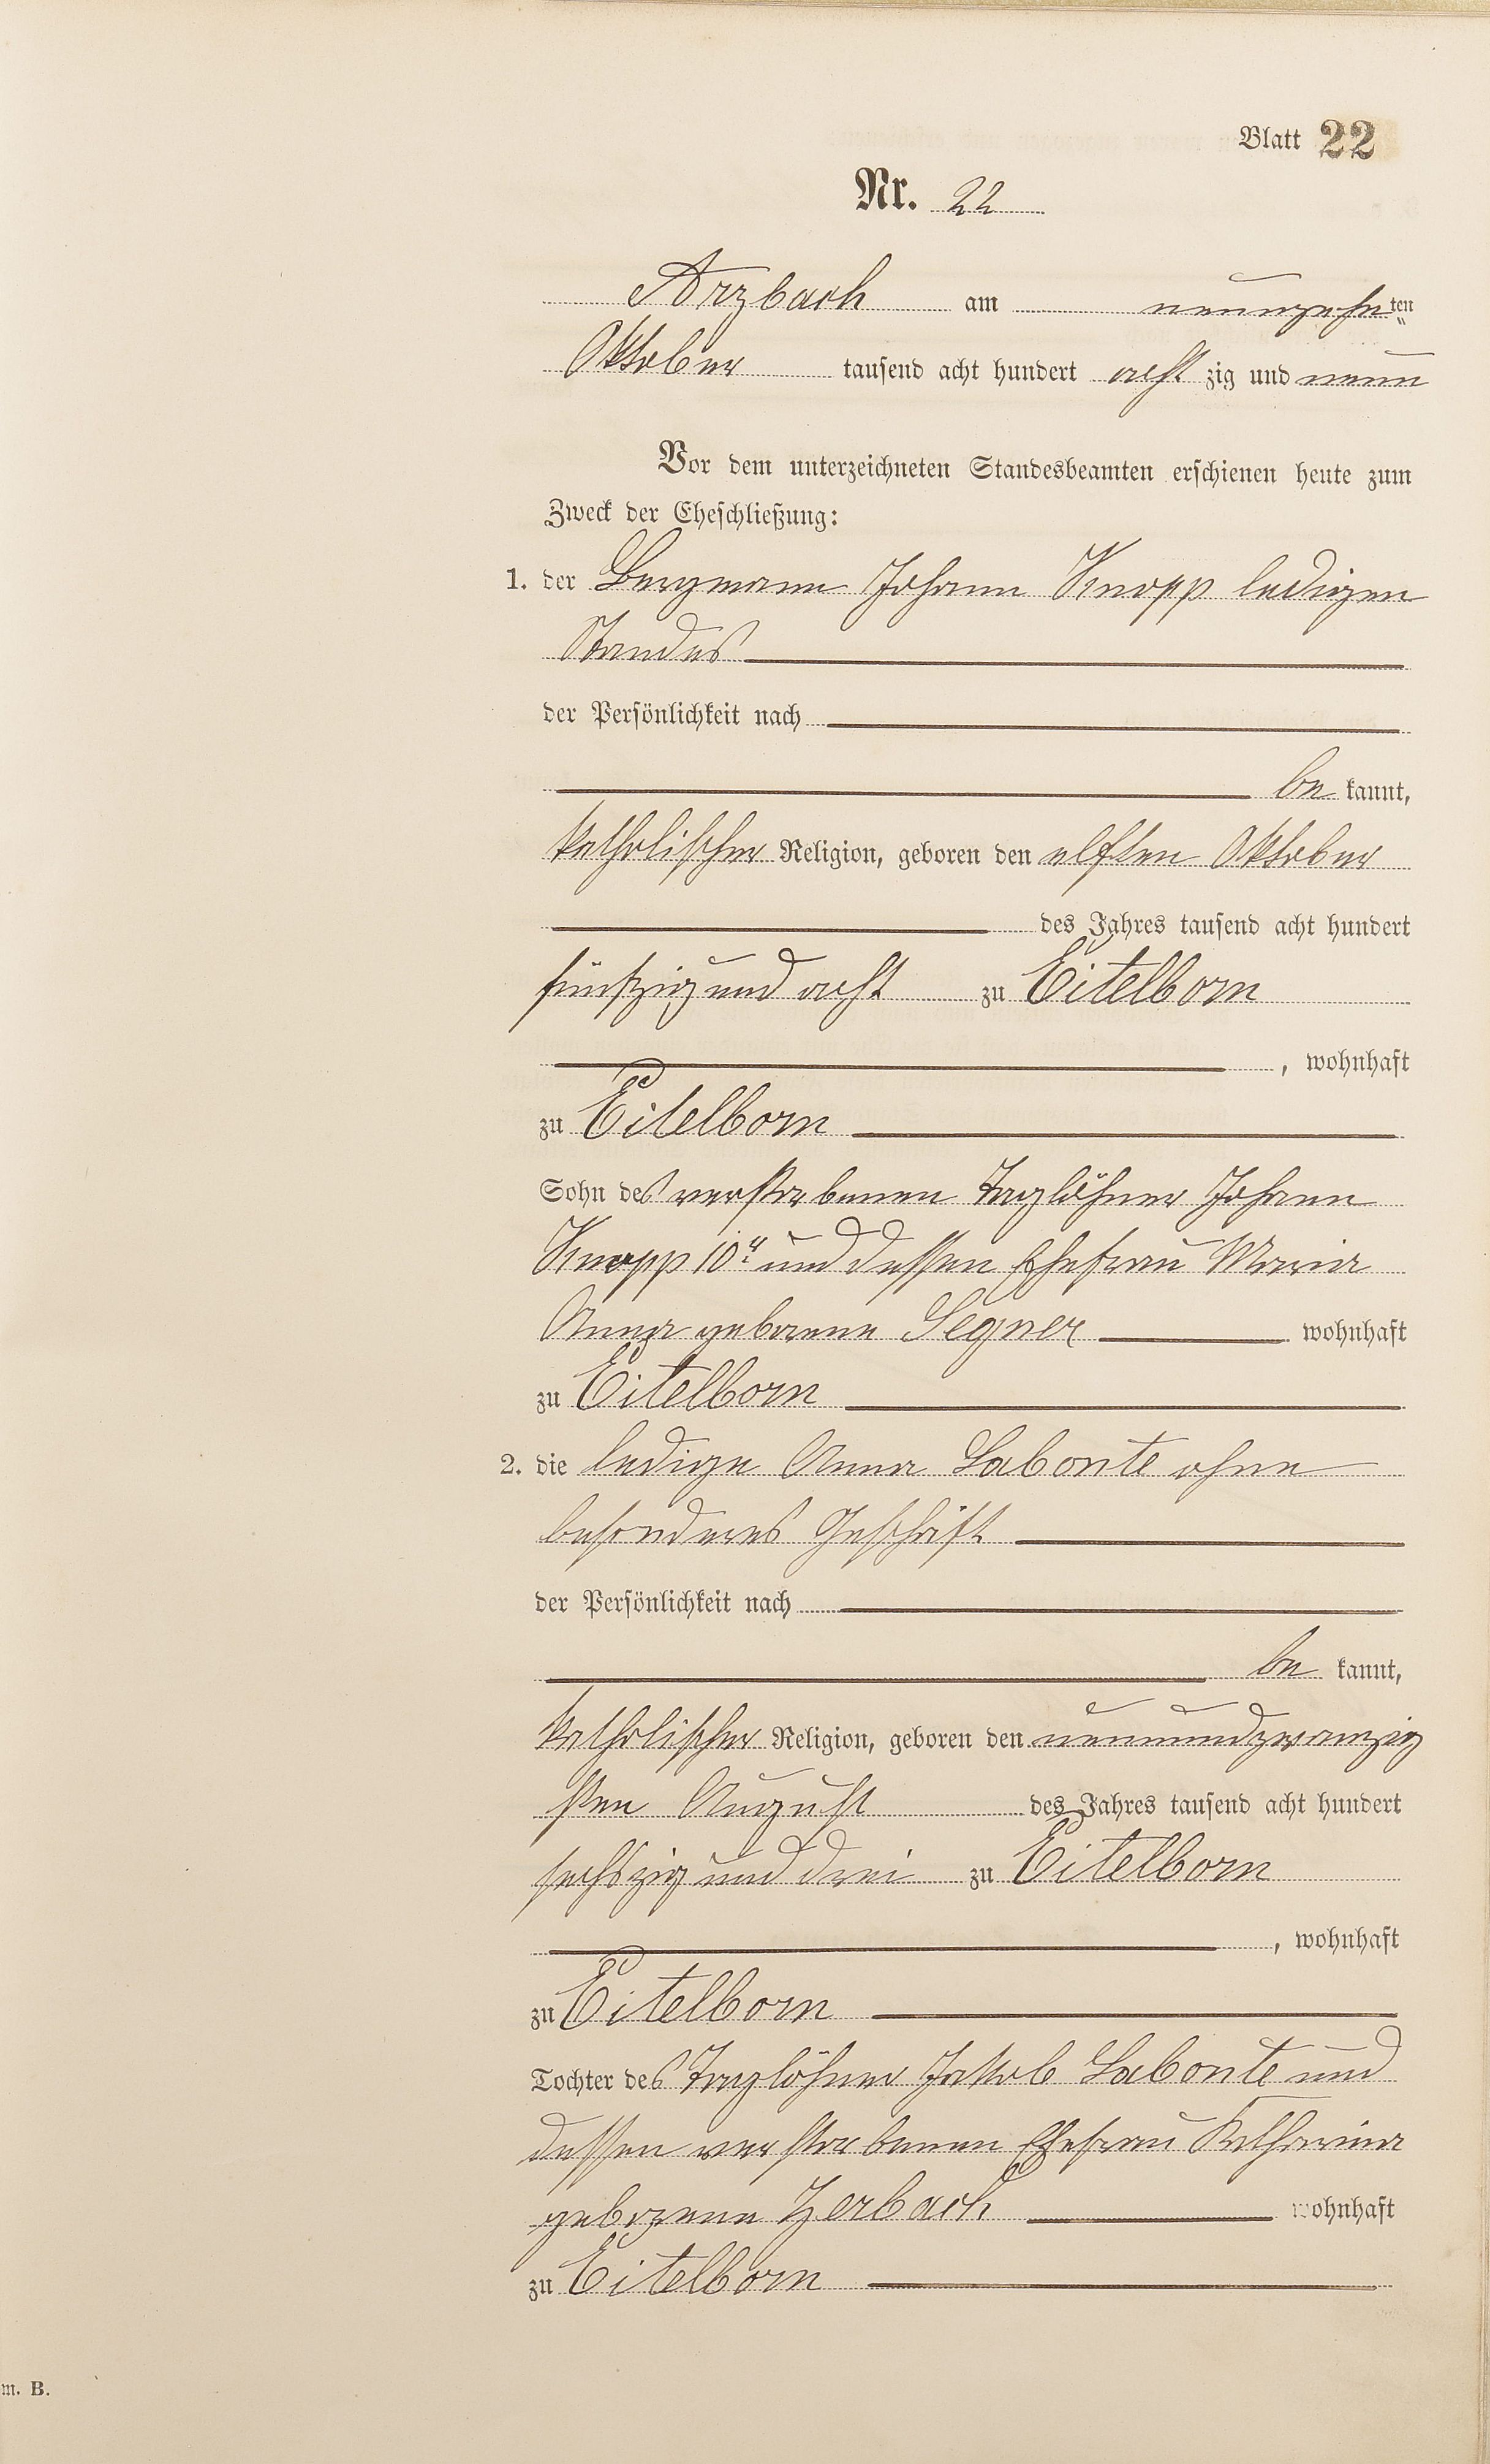 Blatt 22
Nr. 22
Arzbach am neunzehnten
Oktober tausend acht hundert acht zig und neun
Vor dem unterzeichneten Standesbeamten erschienen heute zum
Zweck der Eheschließung:
1. der Bergmann Johann Knopp ledigen
Standes
der Persönlichkeit nach
be kannt,
katholischer Religion, geboren den elften Oktober
des Jahres tausend acht hundert
fünfzig und acht zu Eitelborn
, wohnhaft
zu Eitelborn
Sohn des verstorbenen Taglöhner Johann
Knopp 10r und dessen Ehefrau Maria
Anna geborene Segner wohnhaft
zu Eitelborn
2. die ledige Anna Labonte ohne
besonderes Geschäft
der Persönlichkeit nach
be kannt,
katholischer Religion, geboren den neunundzwanzig
sten August des Jahres tausend acht hundert
sechszig und drei zu Eitelborn
, wohnhaft
zu Eitelborn
Tochter des Taglöhner Jakob Labonte und
dessen verstorbenen Ehefrau Katharina
geborene Zerbach wohnhaft
zu Eitelborn
m. B.